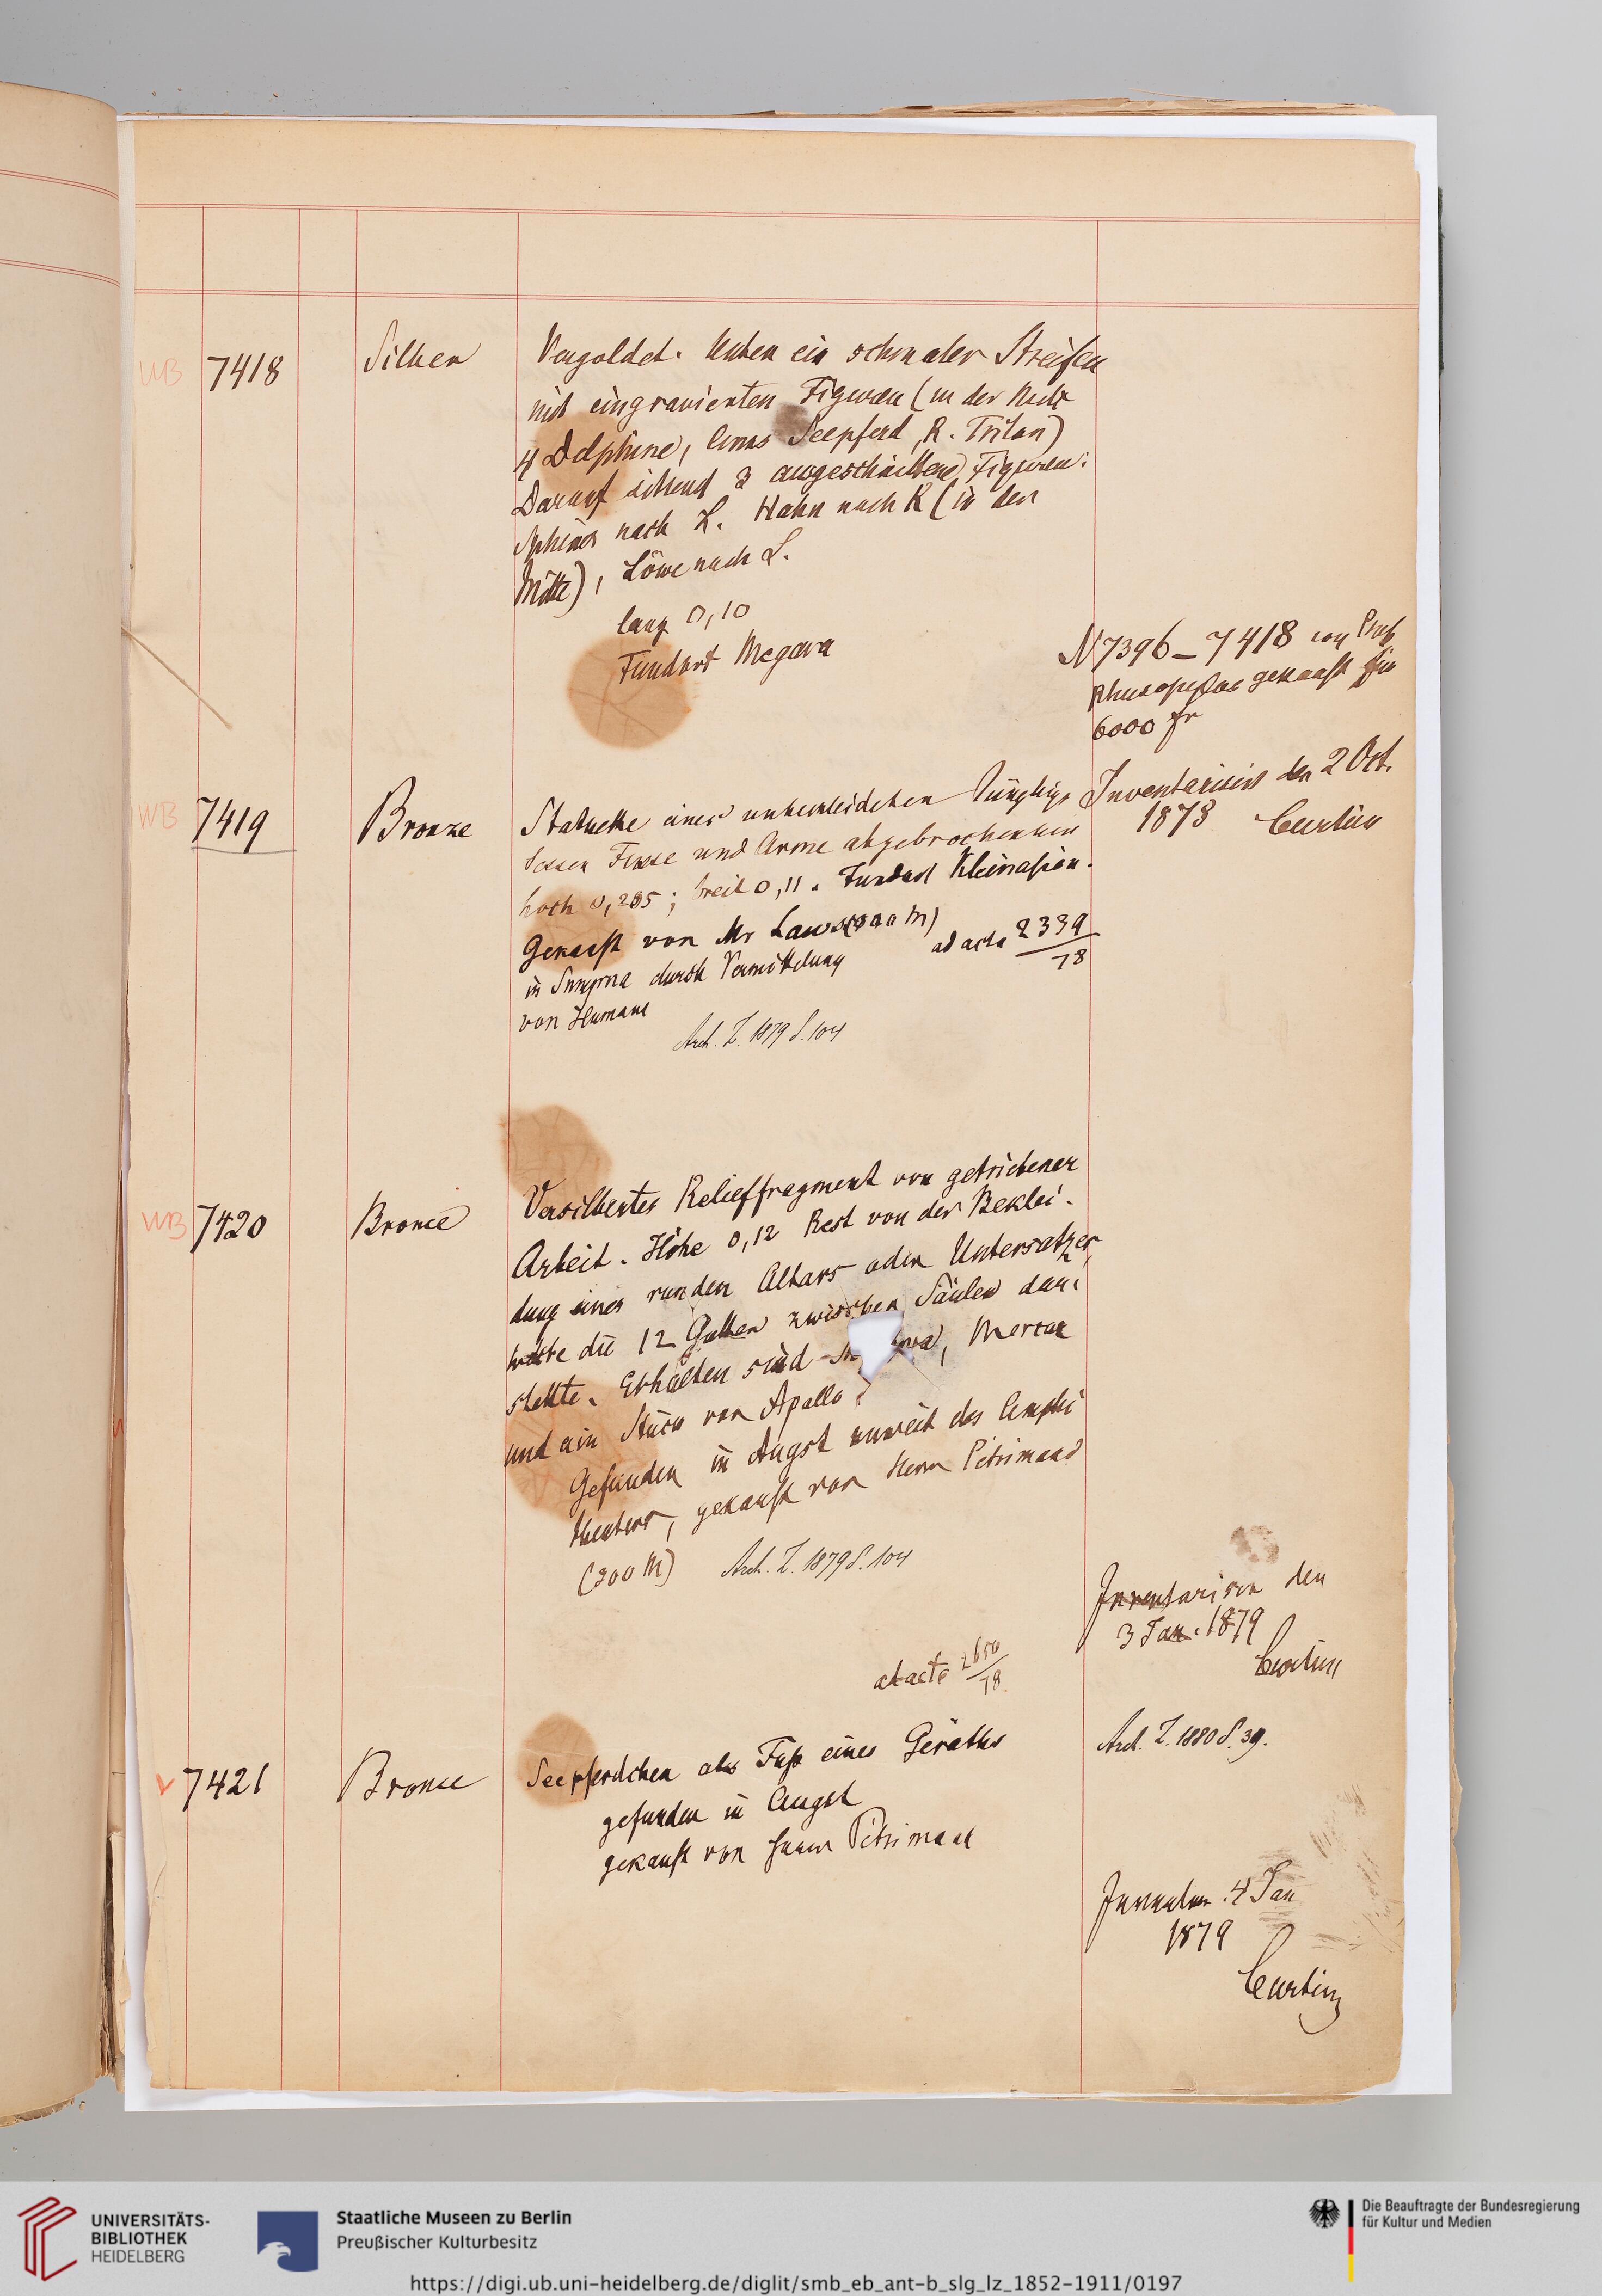 WB 7418 Silber Vergoldet. Unten ein schmaler Streifen
mit eingravierten Figuren (in der Mitte
4 Delphine, links Seepferd, R. Triton)
Darauf sitzend 3 ausgeschnittene Figuren:
Sphinx nach L. Hahn nach R (in der
Mitte), Löwe nach L.
lang 0,10
Fundort Megara
N 7396 – 7418 von Prof.
Rhusopulos gekauft für
6000 fr
WB 7419 Bronze Statuette eines unbekleideten Jünglings
dessen Füsse und Arme abgebrochen
hoch 0,285; breit 0,11. Fundort Kleinasien.
Gekauft von Mr Lawson
in Smyrna durch Vermittelung
von Humann
ad acta 2339/78
Arch. Z. 1879 S. 104
Inventarisirt den 2 Oct.
1878 Curtius
WB 7420 Bronce Versilbertes Relieffragment von getriebener
Arbeit. Höhe 0,12 Rest von der Beklei-
dung eines runden Altars oder Untersatzes,
welche die 12 Götter zwischen Säulen dar-
stellte. Erhalten sind Mercur
und ein Stück von Apollo
Gefunden in Augst unweit des Amphi
theaters, gekauft von Herrn Petrimand
(300 M) Arch. Z. 1879 S. 104
ad acta 2650/78
Inventarisirt den
3 Jan. 1879
Curtius
Arch. Z. 1880 S. 39.
7421 Bronce Seepferdchen als Fuß eines Geräths
gefunden in Augst
gekauft von Herrn Petrimand
4 Jan
1879
Curtius
UNIVERSITÄTS-
BIBLIOTHEK
HEIDELBERG
Staatliche Museen zu Berlin
Preußischer Kulturbesitz
Die Beauftragte der Bundesregierung
für Kultur und Medien
https://digi.ub.uni-heidelberg.de/diglit/smb_eb_ant-b_slg_lz_1852-1911/0197